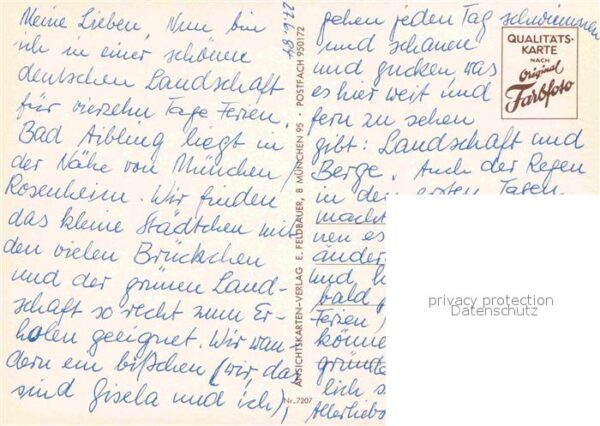 Meine Lieben, Nun bin
ich in einer schönen
deutschen Landschaft
für vierzehn Tage Ferien.
Bad Aibling liegt in
der Nähe von München/
Rosenheim. Wir finden
das kleine Städtchen mit
den vielen Brückchen
und der grünen Land-
schaft so recht zum Er-
holen geeignet. Wir wan-
dern ein bißchen (wir, das
sind Gisela und ich),
gehen jeden Tag schwimmen
und schauen
und gucken, was
es hier weit und
fern zu sehen
gibt: Landschaft und
Berge. Auch der Regen
in den ersten Tagen
macht
nen es
änder
und
bald
Ferien)
könne
gründ
lich s
Allerliebs
ANSICHTSKARTEN-VERLAG E. FELDBAUER, 8 MÜNCHEN 95 · POSTFACH 950172
Nr. 7207
QUALITÄTS-
KARTE
NACH
Original
Farbfoto
privacy protection
Datenschutz